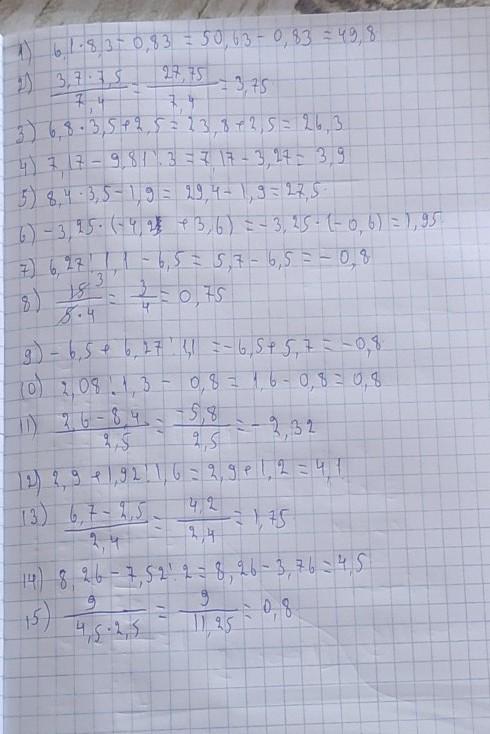 1) 6,1 · 8,3 - 0,83 = 50,63 - 0,83 = 49,8
2) (3,7 · 7,5)/7,4 = 27,75/7,4 = 3,75
3) 6,8 · 3,5 + 2,5 = 23,8 + 2,5 = 26,3
4) 7,17 - 9,81 : 3 = 7,17 - 3,27 = 3,9
5) 8,4 · 3,5 - 1,9 = 29,4 - 1,9 = 27,5
6) -3,25 · (-4,2 + 3,6) = -3,25 · (-0,6) = 1,95
7) 6,27 : 1,1 - 6,5 = 5,7 - 6,5 = -0,8
8) 15 3/(5 · 4) = 3/4 = 0,75
9) -6,5 + 6,27 : 1,1 = -6,5 + 5,7 = -0,8
10) 2,08 : 1,3 - 0,8 = 1,6 - 0,8 = 0,8
11) (2,6 - 8,4)/2,5 = -5,8/2,5 = -2,32
12) 2,9 + 1,92 : 1,6 = 2,9 + 1,2 = 4,1
13) (6,7 - 2,5)/2,4 = 4,2/2,4 = 1,75
14) 8,26 - 7,52 : 2 = 8,26 - 3,76 = 4,5
15) 9/(4,5 · 2,5) = 9/11,25 = 0,8